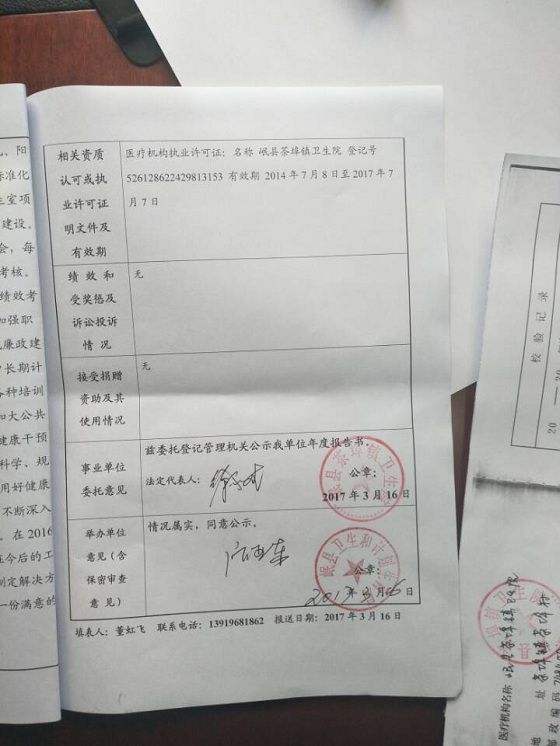 、阳
标准化
生室项
建设。
会，每
考核。
绩效考
加强职
廉政建
中长期计
各种培训
和大公共
健康干预
科学、规
用好健康
不断深入
。在2016
在今后的工
制定解决方
一份满意的
相关资质
认可或执
业许可证
明文件及
有效期
医疗机构执业许可证：名称 岷县茶埠镇卫生院 登记号
526128622429813153 有效期 2014年7月8日至2017年7
月7日
绩效和
受奖惩及
诉讼投诉
情况
无
接受捐赠
资助及其
使用情况
无
事业单位
委托意见
兹委托登记管理机关公示我单位年度报告书。
法定代表人：
公章：
2017年3月16日
岷县茶埠镇卫生院
举办单位
意见（含
保密审查
意见）
情况属实，同意公示。
公章：
2017年3月16日
岷县卫生和计划生育
填表人：董虹飞 联系电话：13919681862 报送日期：2017年3月16日
校验记录
20 — 20
医疗机构名称 岷县茶埠镇卫生院
地址 茶埠镇茶埠村
邮政编码